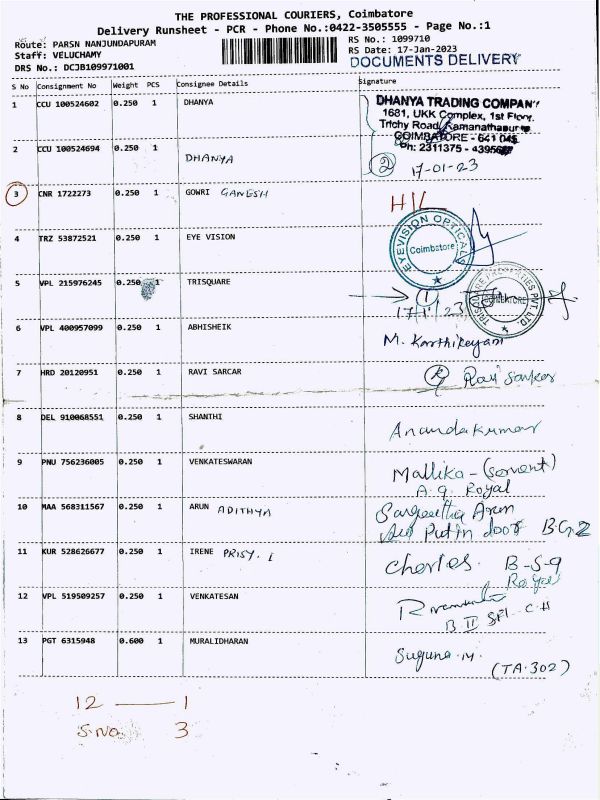 THE PROFESSIONAL COURIERS, Coimbatore
Delivery Runsheet - PCR - Phone No.:0422-3505555 - Page No.:1
Route: PARSN NANJUNDAPURAM
RS No.: 1099710
Staff: VELUCHAMY
RS Date: 17-Jan-2023
DRS No.: DCJB109971001
DOCUMENTS DELIVERY
S No Consignment No Weight PCS Consignee Details Signature
1 CCU 100524602 0.250 1 DHANYA
DHANYA TRADING COMPANY
1681, UKK Complex, 1st Floor,
Trichy Road, Ramanathapuram
COIMBATORE - 641 045
Ph: 2311375 -
2 CCU 100524694 0.250 1 DHANYA
2 17-01-23
3 CNR 1722273 0.250 1 GOWRI GANESH
4 TRZ 53872521 0.250 1 EYE VISION
EYEVISION OPTICALS
Coimbatore
5 VPL 215976245 0.250 1 TRISQUARE
1
17/1/23
TRISQUARE PROPERTIES PVT. LTD.
COIMBATORE
6 VPL 400957099 0.250 1 ABHISHEIK M. Karthikeyani
7 HRD 20120951 0.250 1 RAVI SARCAR Ravi Sarkar
8 DEL 910068551 0.250 1 SHANTHI Anandakumar
9 PNU 756236005 0.250 1 VENKATESWARAN Mallika - (servent)
A.9 Royal
10 MAA 568311567 0.250 1 ARUN ADITHYA Sangeetha Arun
Put in door BG2
11 KUR 528626677 0.250 1 IRENE PRISY. I Charles. B-S-9
Royal
12 VPL 519509257 0.250 1 VENKATESAN
B II
13 PGT 6315948 0.600 1 MURALIDHARAN Suguna.M.
(TA.302)
12 — 1
S.No 3